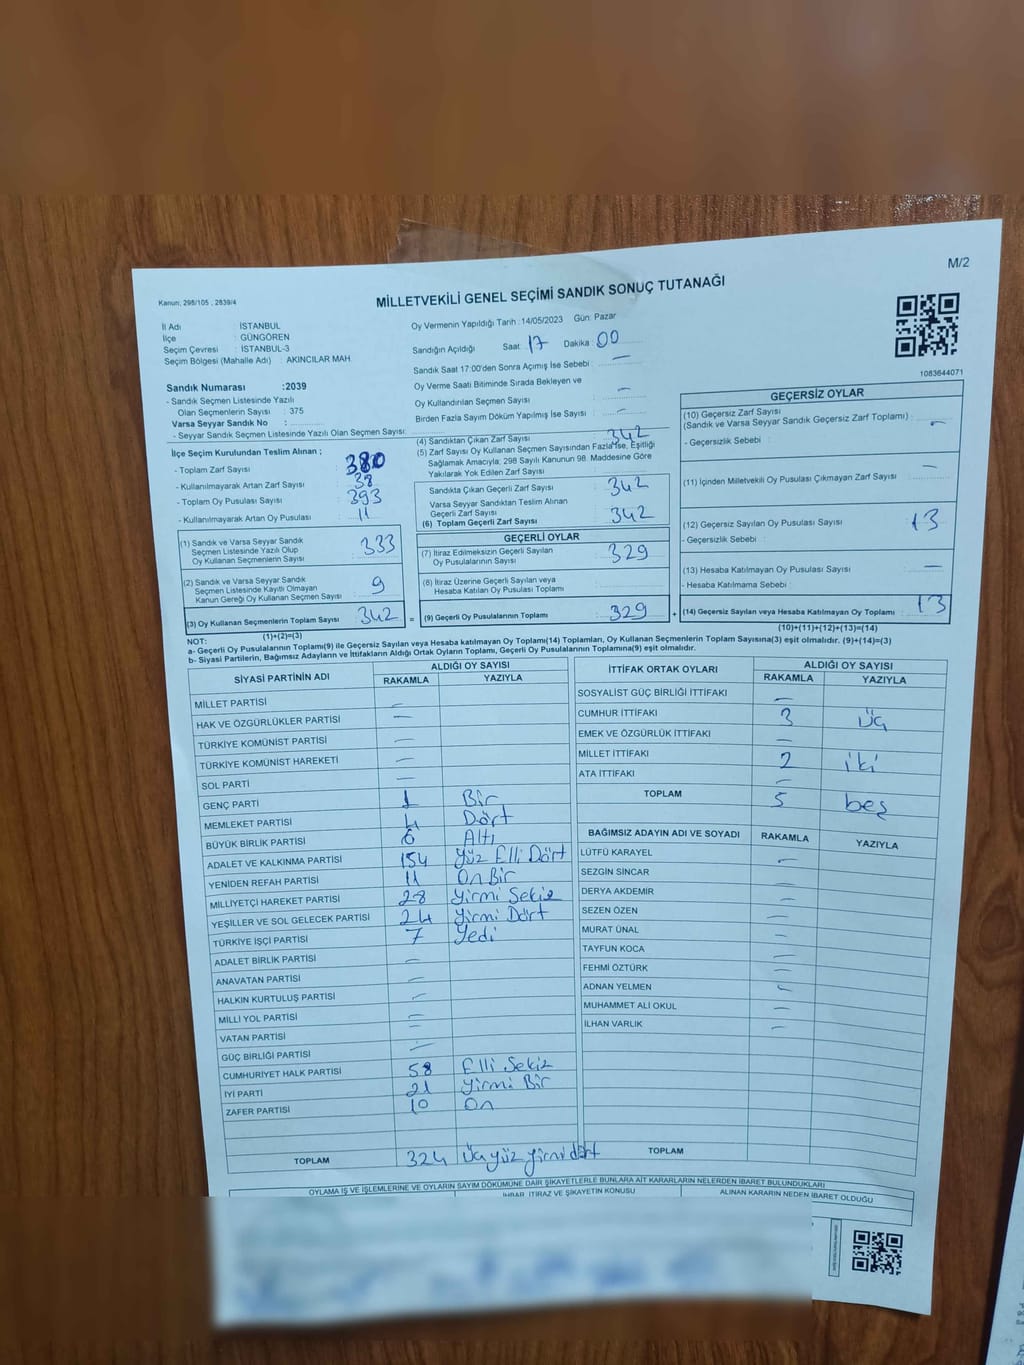 M/2
Kanun; 298/105 , 2839/4
MİLLETVEKİLİ GENEL SEÇİMİ SANDIK SONUÇ TUTANAĞI
İl Adı : İSTANBUL
İlçe : GÜNGÖREN
Seçim Çevresi : İSTANBUL-3
Seçim Bölgesi (Mahalle Adı) : AKINCILAR MAH.
Sandık Numarası :2039
- Sandık Seçmen Listesinde Yazılı
Olan Seçmenlerin Sayısı : 375
Varsa Seyyar Sandık No :
- Seyyar Sandık Seçmen Listesinde Yazılı Olan Seçmen Sayısı:
Oy Vermenin Yapıldığı Tarih : 14/05/2023 Gün: Pazar
Sandığın Açıldığı Saat 17 Dakika : 00
Sandık Saat 17:00'den Sonra Açımış İse Sebebi : —
Oy Verme Saati Bitiminde Sırada Bekleyen ve
Oy Kullandırılan Seçmen Sayısı : —
Birden Fazla Sayım Döküm Yapılmış İse Sayısı : —
1083644071
İlçe Seçim Kurulundan Teslim Alınan ;
- Toplam Zarf Sayısı 380
- Kullanılmayarak Artan Zarf Sayısı 38
- Toplam Oy Pusulası Sayısı 393
- Kullanılmayarak Artan Oy Pusulası 11
(1) Sandık ve Varsa Seyyar Sandık
Seçmen Listesinde Yazılı Olup
Oy Kullanan Seçmenlerin Sayısı 333
(2) Sandık ve Varsa Seyyar Sandık
Seçmen Listesinde Kayıtlı Olmayan
Kanun Gereği Oy Kullanan Seçmen Sayısı 9
(3) Oy Kullanan Seçmenlerin Toplam Sayısı 342
(1)+(2)=(3)
(4) Sandıktan Çıkan Zarf Sayısı 342
(5) Zarf Sayısı Oy Kullanan Seçmen Sayısından Fazla İse, Eşitliği
Sağlamak Amacıyla; 298 Sayılı Kanunun 98. Maddesine Göre
Yakılarak Yok Edilen Zarf Sayısı
Sandıkta Çıkan Geçerli Zarf Sayısı 342
Varsa Seyyar Sandıktan Teslim Alınan
Geçerli Zarf Sayısı
(6) Toplam Geçerli Zarf Sayısı 342
GEÇERLİ OYLAR
(7) İtiraz Edilmeksizin Geçerli Sayılan
Oy Pusulalarının Sayısı 329
(8) İtiraz Üzerine Geçerli Sayılan veya
Hesaba Katılan Oy Pusulası Toplamı
= (9) Geçerli Oy Pusulalarının Toplamı 329
GEÇERSİZ OYLAR
(10) Geçersiz Zarf Sayısı
(Sandık ve Varsa Seyyar Sandık Geçersiz Zarf Toplamı) : —
- Geçersizlik Sebebi :
(11) İçinden Milletvekili Oy Pusulası Çıkmayan Zarf Sayısı : —
(12) Geçersiz Sayılan Oy Pusulası Sayısı : 13
- Geçersizlik Sebebi :
(13) Hesaba Katılmayan Oy Pusulası Sayısı : —
- Hesaba Katılmama Sebebi :
+ (14) Geçersiz Sayılan veya Hesaba Katılmayan Oy Toplamı : 13
(10)+(11)+(12)+(13)=(14)
NOT:
a- Geçerli Oy Pusulalarının Toplamı(9) ile Geçersiz Sayılan veya Hesaba katılmayan Oy Toplamı(14) Toplamları, Oy Kullanan Seçmenlerin Toplam Sayısına(3) eşit olmalıdır. (9)+(14)=(3)
b- Siyasi Partilerin, Bağımsız Adayların ve İttifakların Aldığı Ortak Oyların Toplamı, Geçerli Oy Pusulalarının Toplamına(9) eşit olmalıdır.
SİYASİ PARTİNİN ADI ALDIĞI OY SAYISI
RAKAMLA YAZIYLA
MİLLET PARTİSİ —
HAK VE ÖZGÜRLÜKLER PARTİSİ —
TÜRKİYE KOMÜNİST PARTİSİ —
TÜRKİYE KOMÜNİST HAREKETİ —
SOL PARTİ —
GENÇ PARTİ 1 Bir
MEMLEKET PARTİSİ 4 Dört
BÜYÜK BİRLİK PARTİSİ 6 Altı
ADALET VE KALKINMA PARTİSİ 154 Yüz Elli Dört
YENİDEN REFAH PARTİSİ 11 On Bir
MİLLİYETÇİ HAREKET PARTİSİ 28 Yirmi Sekiz
YEŞİLLER VE SOL GELECEK PARTİSİ 24 Yirmi Dört
TÜRKİYE İŞÇİ PARTİSİ 7 Yedi
ADALET BİRLİK PARTİSİ —
ANAVATAN PARTİSİ —
HALKIN KURTULUŞ PARTİSİ —
MİLLİ YOL PARTİSİ —
VATAN PARTİSİ —
GÜÇ BİRLİĞİ PARTİSİ —
CUMHURİYET HALK PARTİSİ 58 Elli Sekiz
İYİ PARTİ 21 Yirmi Bir
ZAFER PARTİSİ 10 On
TOPLAM 324 Üçyüz yirmi dört
İTTİFAK ORTAK OYLARI ALDIĞI OY SAYISI
RAKAMLA YAZIYLA
SOSYALİST GÜÇ BİRLİĞİ İTTİFAKI —
CUMHUR İTTİFAKI 3 Üç
EMEK VE ÖZGÜRLÜK İTTİFAKI —
MİLLET İTTİFAKI 2 iki
ATA İTTİFAKI —
TOPLAM 5 beş
BAĞIMSIZ ADAYIN ADI VE SOYADI RAKAMLA YAZIYLA
LÜTFÜ KARAYEL —
SEZGİN SİNCAR
DERYA AKDEMİR —
SEZEN ÖZEN —
MURAT ÜNAL —
TAYFUN KOCA —
FEHMİ ÖZTÜRK —
ADNAN YELMEN —
MUHAMMET ALİ OKUL —
İLHAN VARLIK —
TOPLAM
OYLAMA İŞ VE İŞLEMLERİNE VE OYLARIN SAYIM DÖKÜMÜNE DAİR ŞİKAYETLERLE BUNLARA AİT KARARLARIN NELERDEN İBARET BULUNDUKLARI
İHBAR, İTİRAZ VE ŞİKAYETİN KONUSU ALINAN KARARIN NEDEN İBARET OLDUĞU